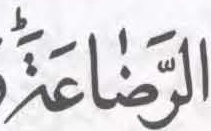 الرَّضَاعَةَؕ